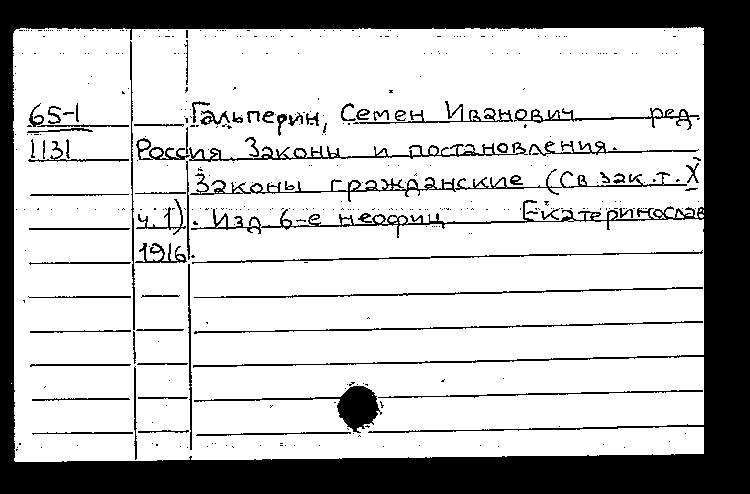 65-1 Гальперин, Семен Иванович ред.
1131 Россия. Законы и постановления.
Законы гражданские (Св. зак. т. X
ч. 1). Изд. 6-е неофиц. Екатеринослав
1916.